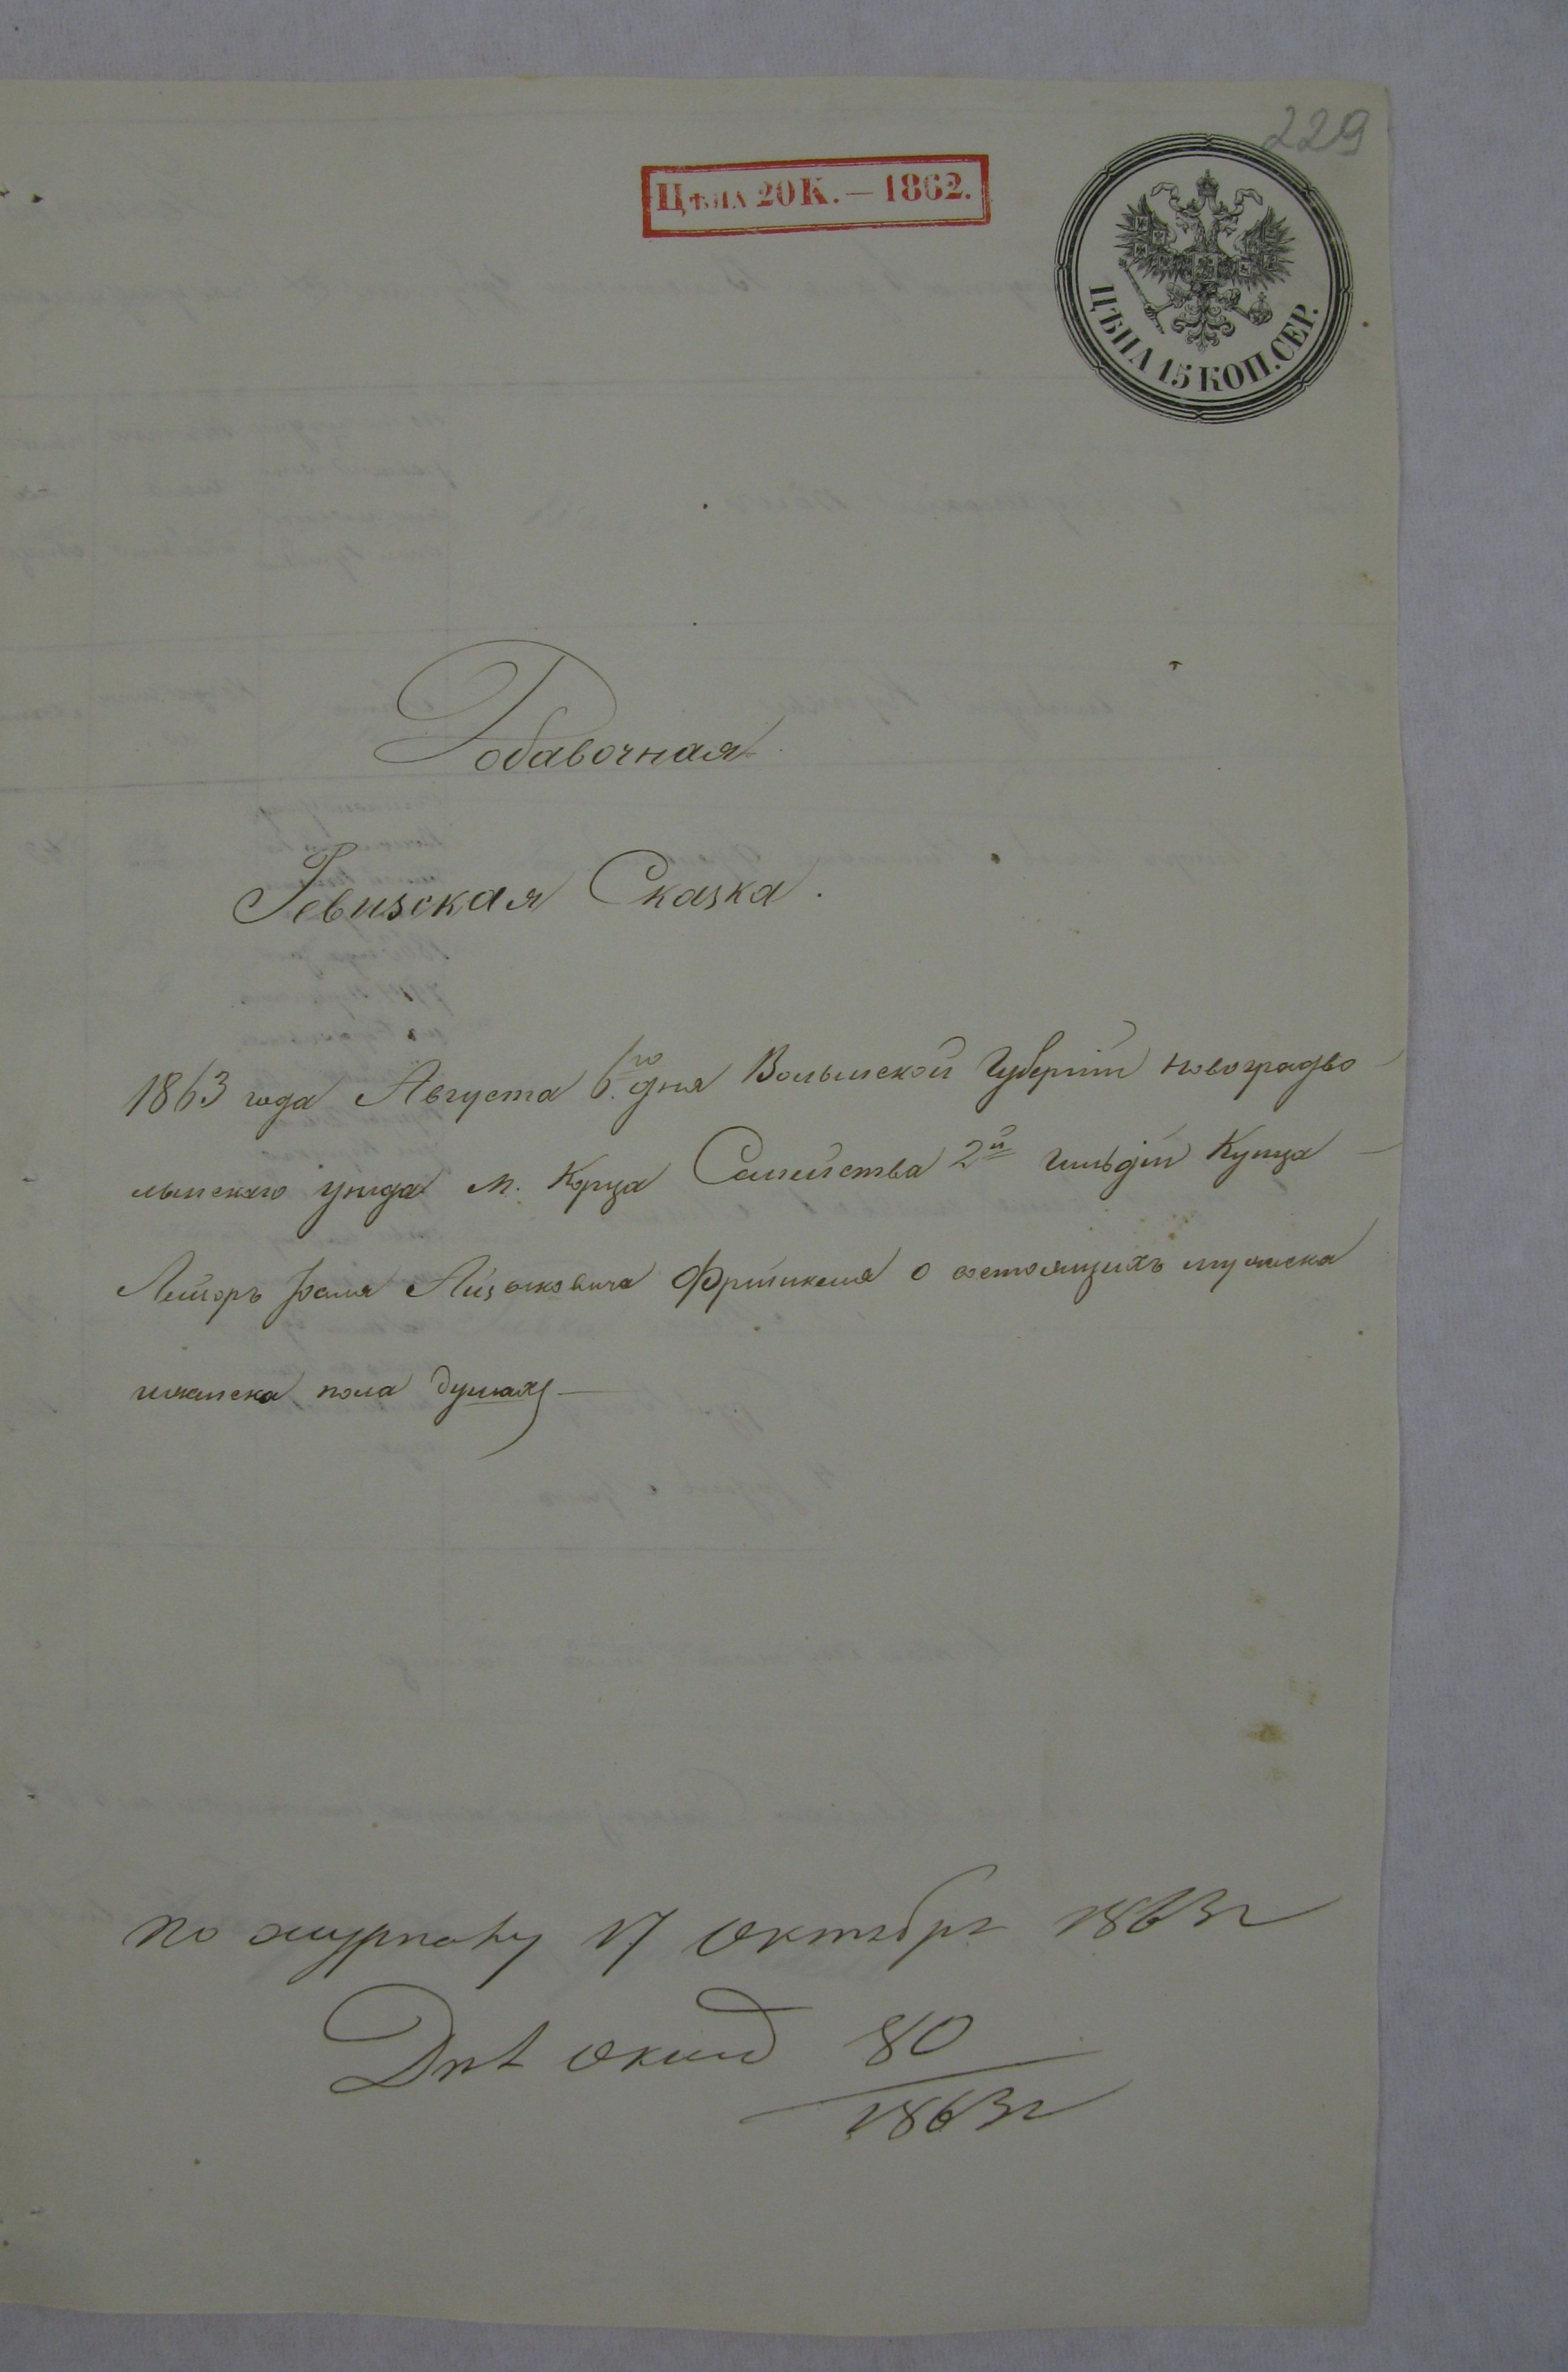 229
ЦѢНА 20 К. — 1862.
ЦѢНА 15 КОП. СЕР.
Добавочная
Ревизская Сказка.
1863 года Августа 6го дня Волынской Губерніи Новоградво-
лынскаго уѣзда м. Корца Семейства 2й гильдіи Купца
Лейзоръ Айзиковича Фринкеля о состоящихъ мужеска
женска пола душахъ
по журналу 17 Октября 1863 г
80
1863 г